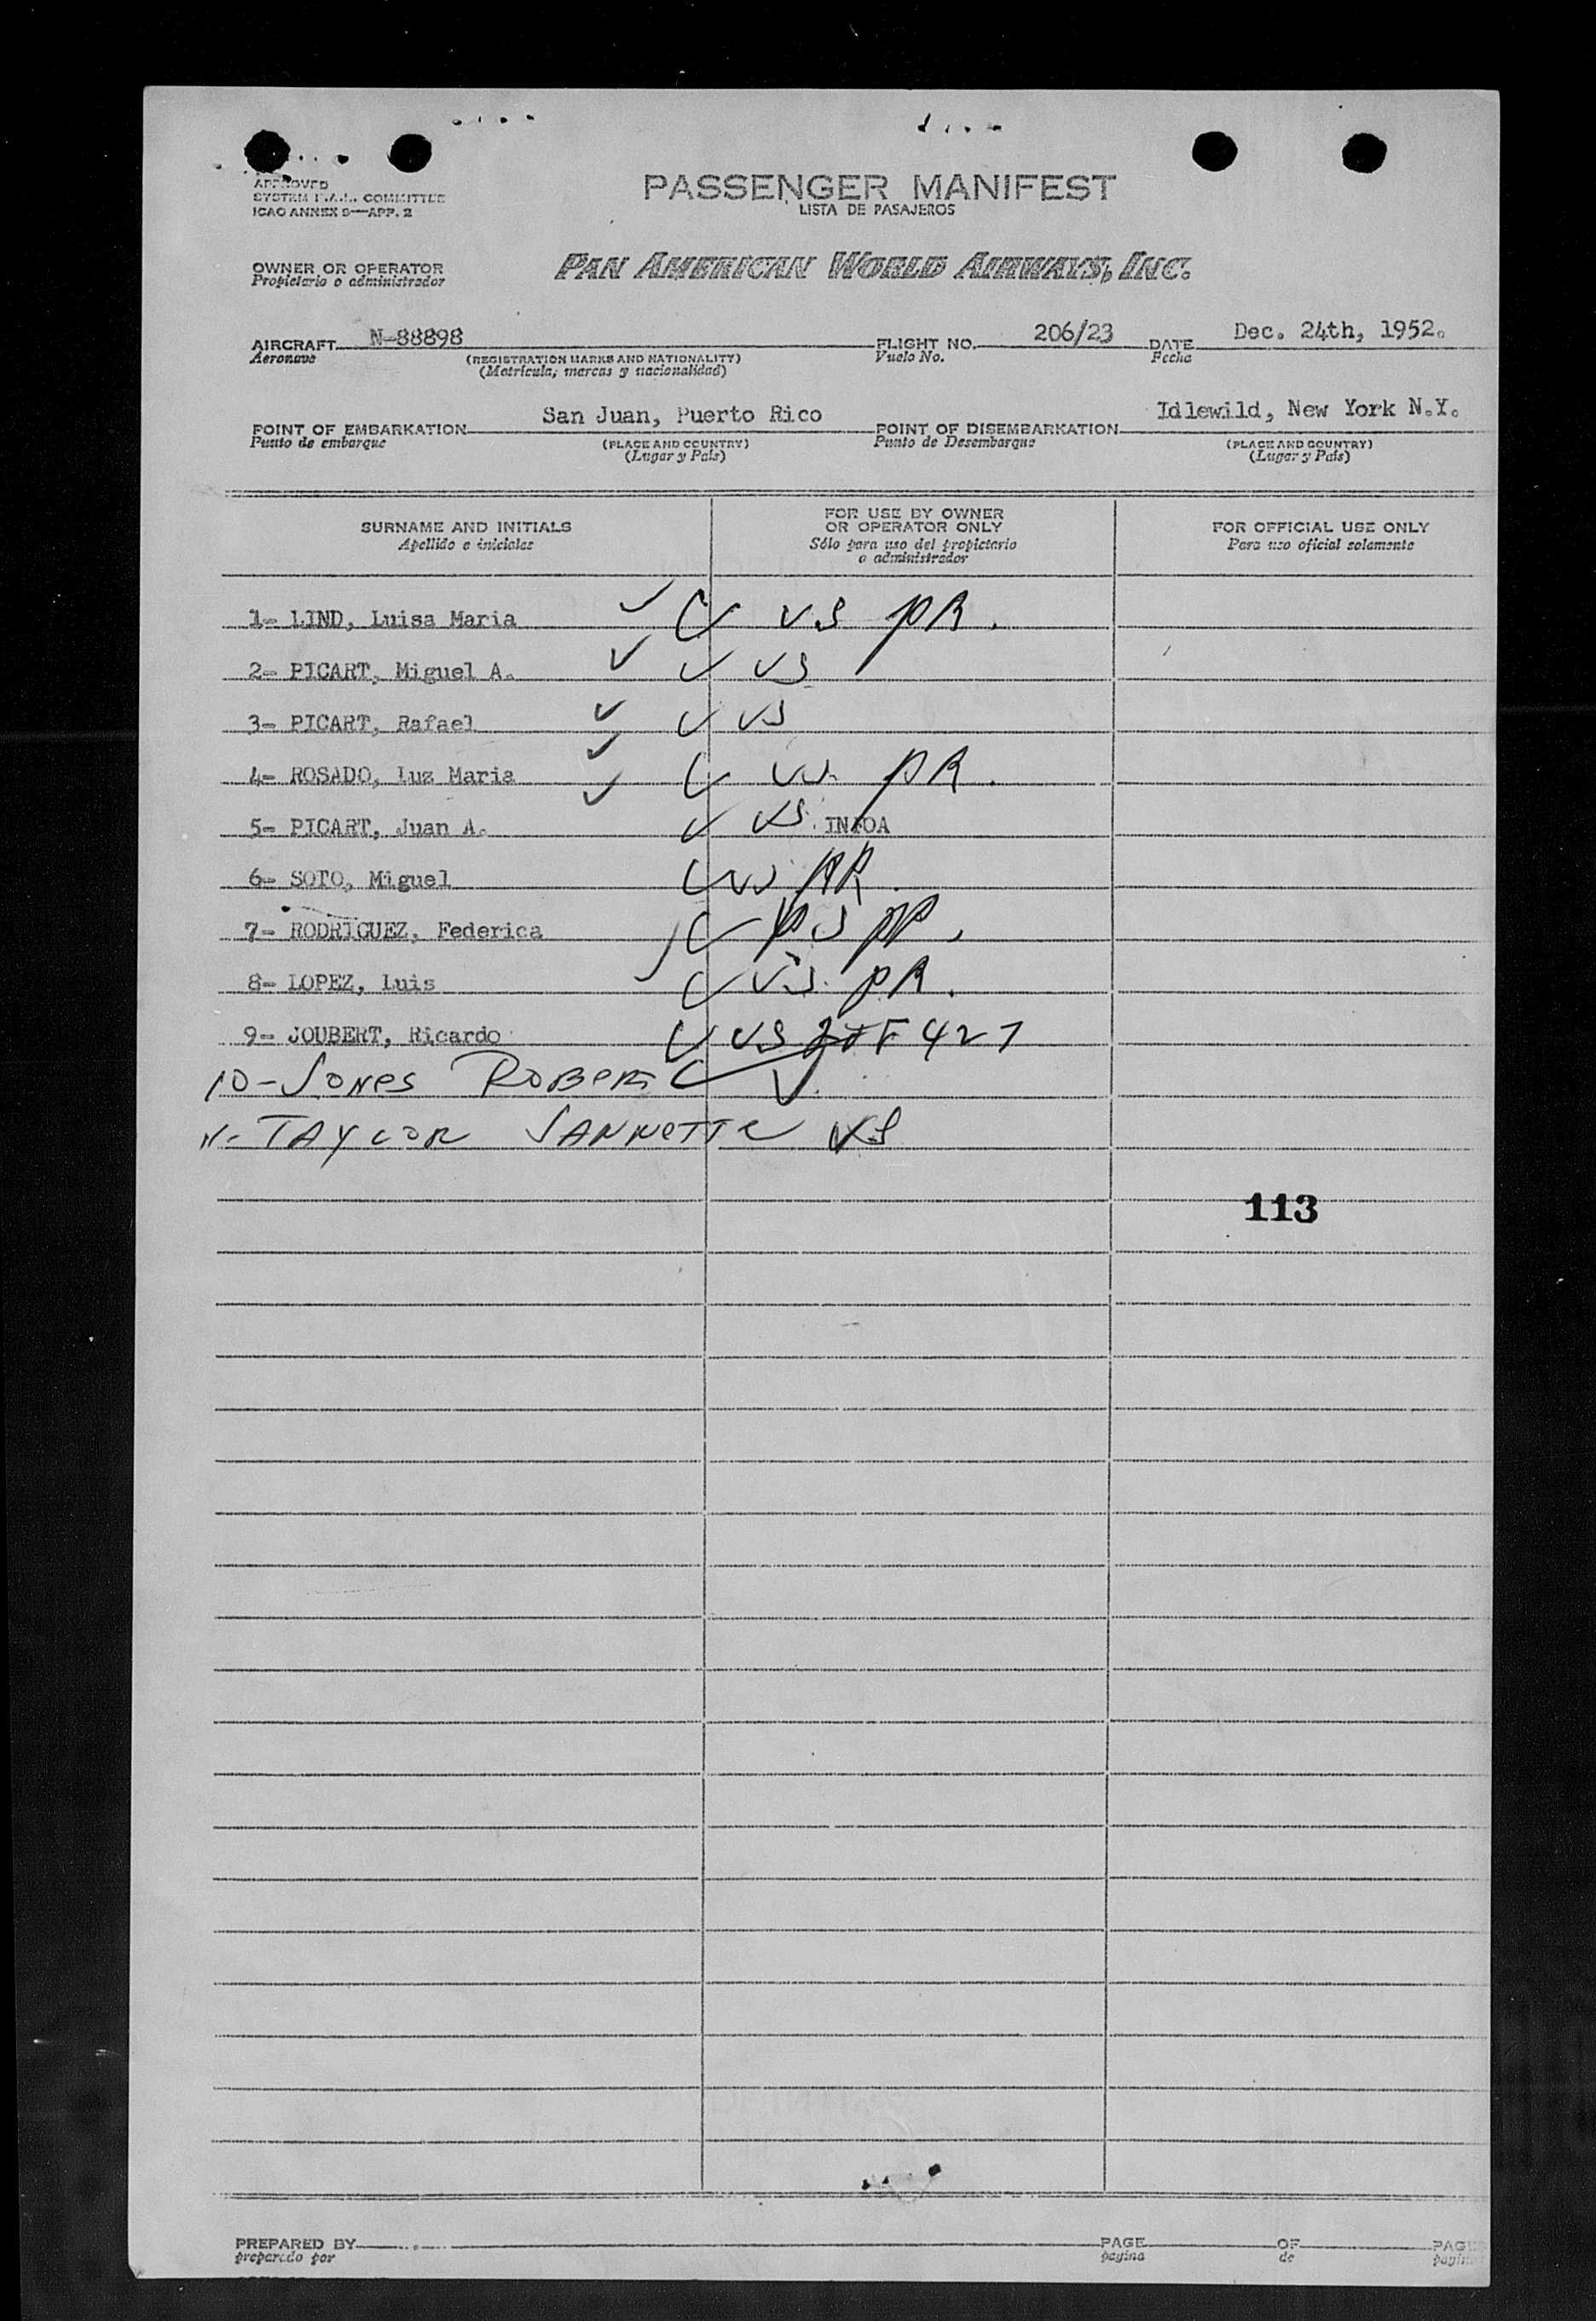 APPROVED
SYSTEM F.A.L. COMMITTEE
ICAO ANNEX 9—APP. 2
PASSENGER MANIFEST
LISTA DE PASAJEROS
OWNER OR OPERATOR
Propietario o administrador
PAN AMERICAN WORLD AIRWAYS, INC.
AIRCRAFT N-88898
Aeronave
(REGISTRATION MARKS AND NATIONALITY)
(Matrícula, marcas y nacionalidad)
FLIGHT NO. 206/23
Vuelo No.
DATE Dec. 24th, 1952.
Fecha
POINT OF EMBARKATION San Juan, Puerto Rico
Punto de embarque
(PLACE AND COUNTRY)
(Lugar y País)
POINT OF DISEMBARKATION Idlewild, New York N.Y.
Punto de Desembarque
(PLACE AND COUNTRY)
(Lugar y País)
SURNAME AND INITIALS
Apellido e iniciales
FOR USE BY OWNER
OR OPERATOR ONLY
Sólo para uso del propietario
o administrador
FOR OFFICIAL USE ONLY
Para uso oficial solamente
1- LIND, Luisa Maria ✓ ✓ VS PR.
2- PICART, Miguel A. ✓ ✓ VS
3- PICART, Rafael ✓ ✓ VS
4- ROSADO, Luz Maria ✓ ✓ VS PR.
5- PICART, Juan A. ✓ ✓ VS
6- SOTO, Miguel ✓ VS PR.
7- RODRIGUEZ, Federica ✓
8- LOPEZ, Luis ✓ VS. PR.
9- JOUBERT, Ricardo ✓ VS 427
10- JONES ROBERT ✓
11- TAYLOR JANNETTE VS
113
PREPARED BY
preparado por
PAGE
pagina
OF
de